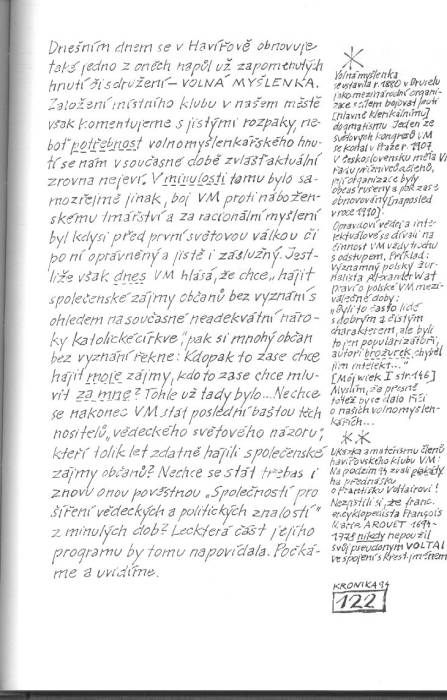 Dnešním dnem se v Havířově obnovuje
také jedno z oněch napůl už zapomenutých
hnutí či sdružení – VOLNÁ MYŠLENKA.
Založení místního klubu v našem městě
však komentujeme s jistými rozpaky, ne-
boť potřebnost volnomyšlenkářského hnu-
tí se nám v současné době zvlášť aktuální
zrovna nejeví. V minulosti tomu bylo sa-
mozřejmě jinak, boj VM proti nábožen-
skému tmářství a za racionální myšlení
byl kdysi před první světovou válkou či
po ní oprávněný a jistě i záslužný. Jest-
liže však dnes VM hlásá, že chce „hájit
společenské zájmy občanů bez vyznání s
ohledem na současné neadekvátní náro-
ky katolické církve", pak si mnohý občan
bez vyznání řekne: Kdopak to zase chce
hájit moje zájmy, kdo to zase chce mlu-
vit za mne? Tohle už tady bylo... Nechce
se nakonec VM stát poslední baštou těch
nositelů „vědeckého světového názoru",
kteří tolik let zdatně hájili společenské
zájmy občanů? Nechce se stát třebas i
znovu onou pověstnou „Společností pro
šíření vědeckých a politických znalostí"
z minulých dob? Leckterá část jejího
programu by tomu napovídala. Počká-
me a uvidíme.
*
Volná myšlenka
se ustavila r. 1880 v Bruselu
jako mezinárodní organi-
zace s cílem bojovat proti
[hlavně klerikálnímu]
dogmatismu. Jeden ze
světových kongresů VM
se konal v Praze r. 1907.
V Československu měla VM
řadu příznivců a členů,
její organizace byly
občas rušeny a pak zase
obnovovány [naposled
v roce 1990].
Opravdoví vědci a inte-
lektuálové se dívali na
činnost VM vždy trochu
s odstupem. Příklad:
Významný polský žur-
nalista Alexander Wat
praví o polské VM mezi-
válečné doby:
„Byli to často lidé
s dobrým a čistým
charakterem, ale byli
to jen popularizátoři,
autoři brožurek, chyběl
jim intelekt..."
[Mój wiek I str. 146]
Myslím, že přesně
totéž bylo dalo říci
o našich volnomyšlen-
kářích...
**
Ukázka amatérismu členů
havířovského klubu VM:
Na podzim 93 zvali plakáty
na přednášku
o Františku Voltairovi!
Nezjistili si, že franc.
encyklopedista François
Marie AROUET 1694-
1778 nikdy nepoužil
svůj pseudonym VOLTAI
ve spojení s křest. jménem
KRONIKA 94
122